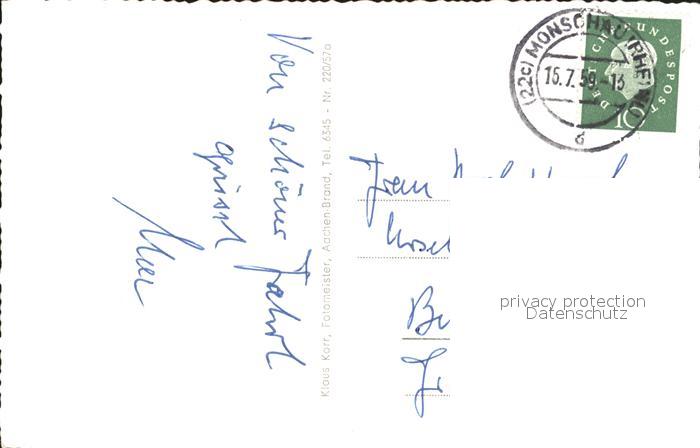 Von schöner Fahrt
grüsst
Klaus Karr, Fotomeister, Aachen-Brand, Tel. 6345 - Nr. 220/57a
(22c) MONSCHAU (RHEINL)
15.7.59.-13
d
DEUTSCHE BUNDESPOST
10
Frau
privacy protection
Datenschutz